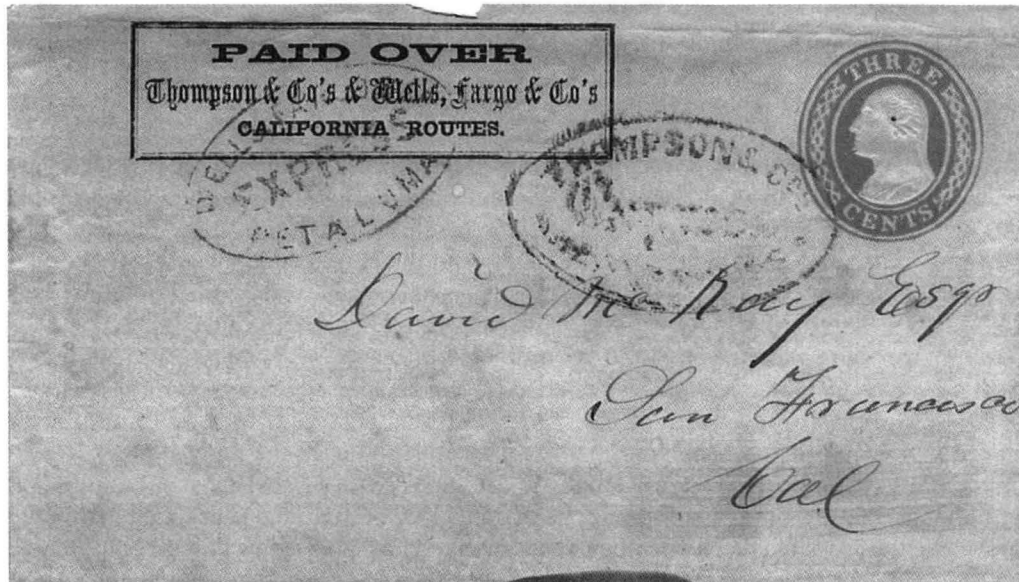 PAID OVER
Thompson & Co's & Wells, Fargo & Co's
CALIFORNIA ROUTES.
WELLS
EXPRESS
PETALUMA
THOMPSON & CO
THREE
CENTS
David Mc Kay Esqr
San Francisco
Cal